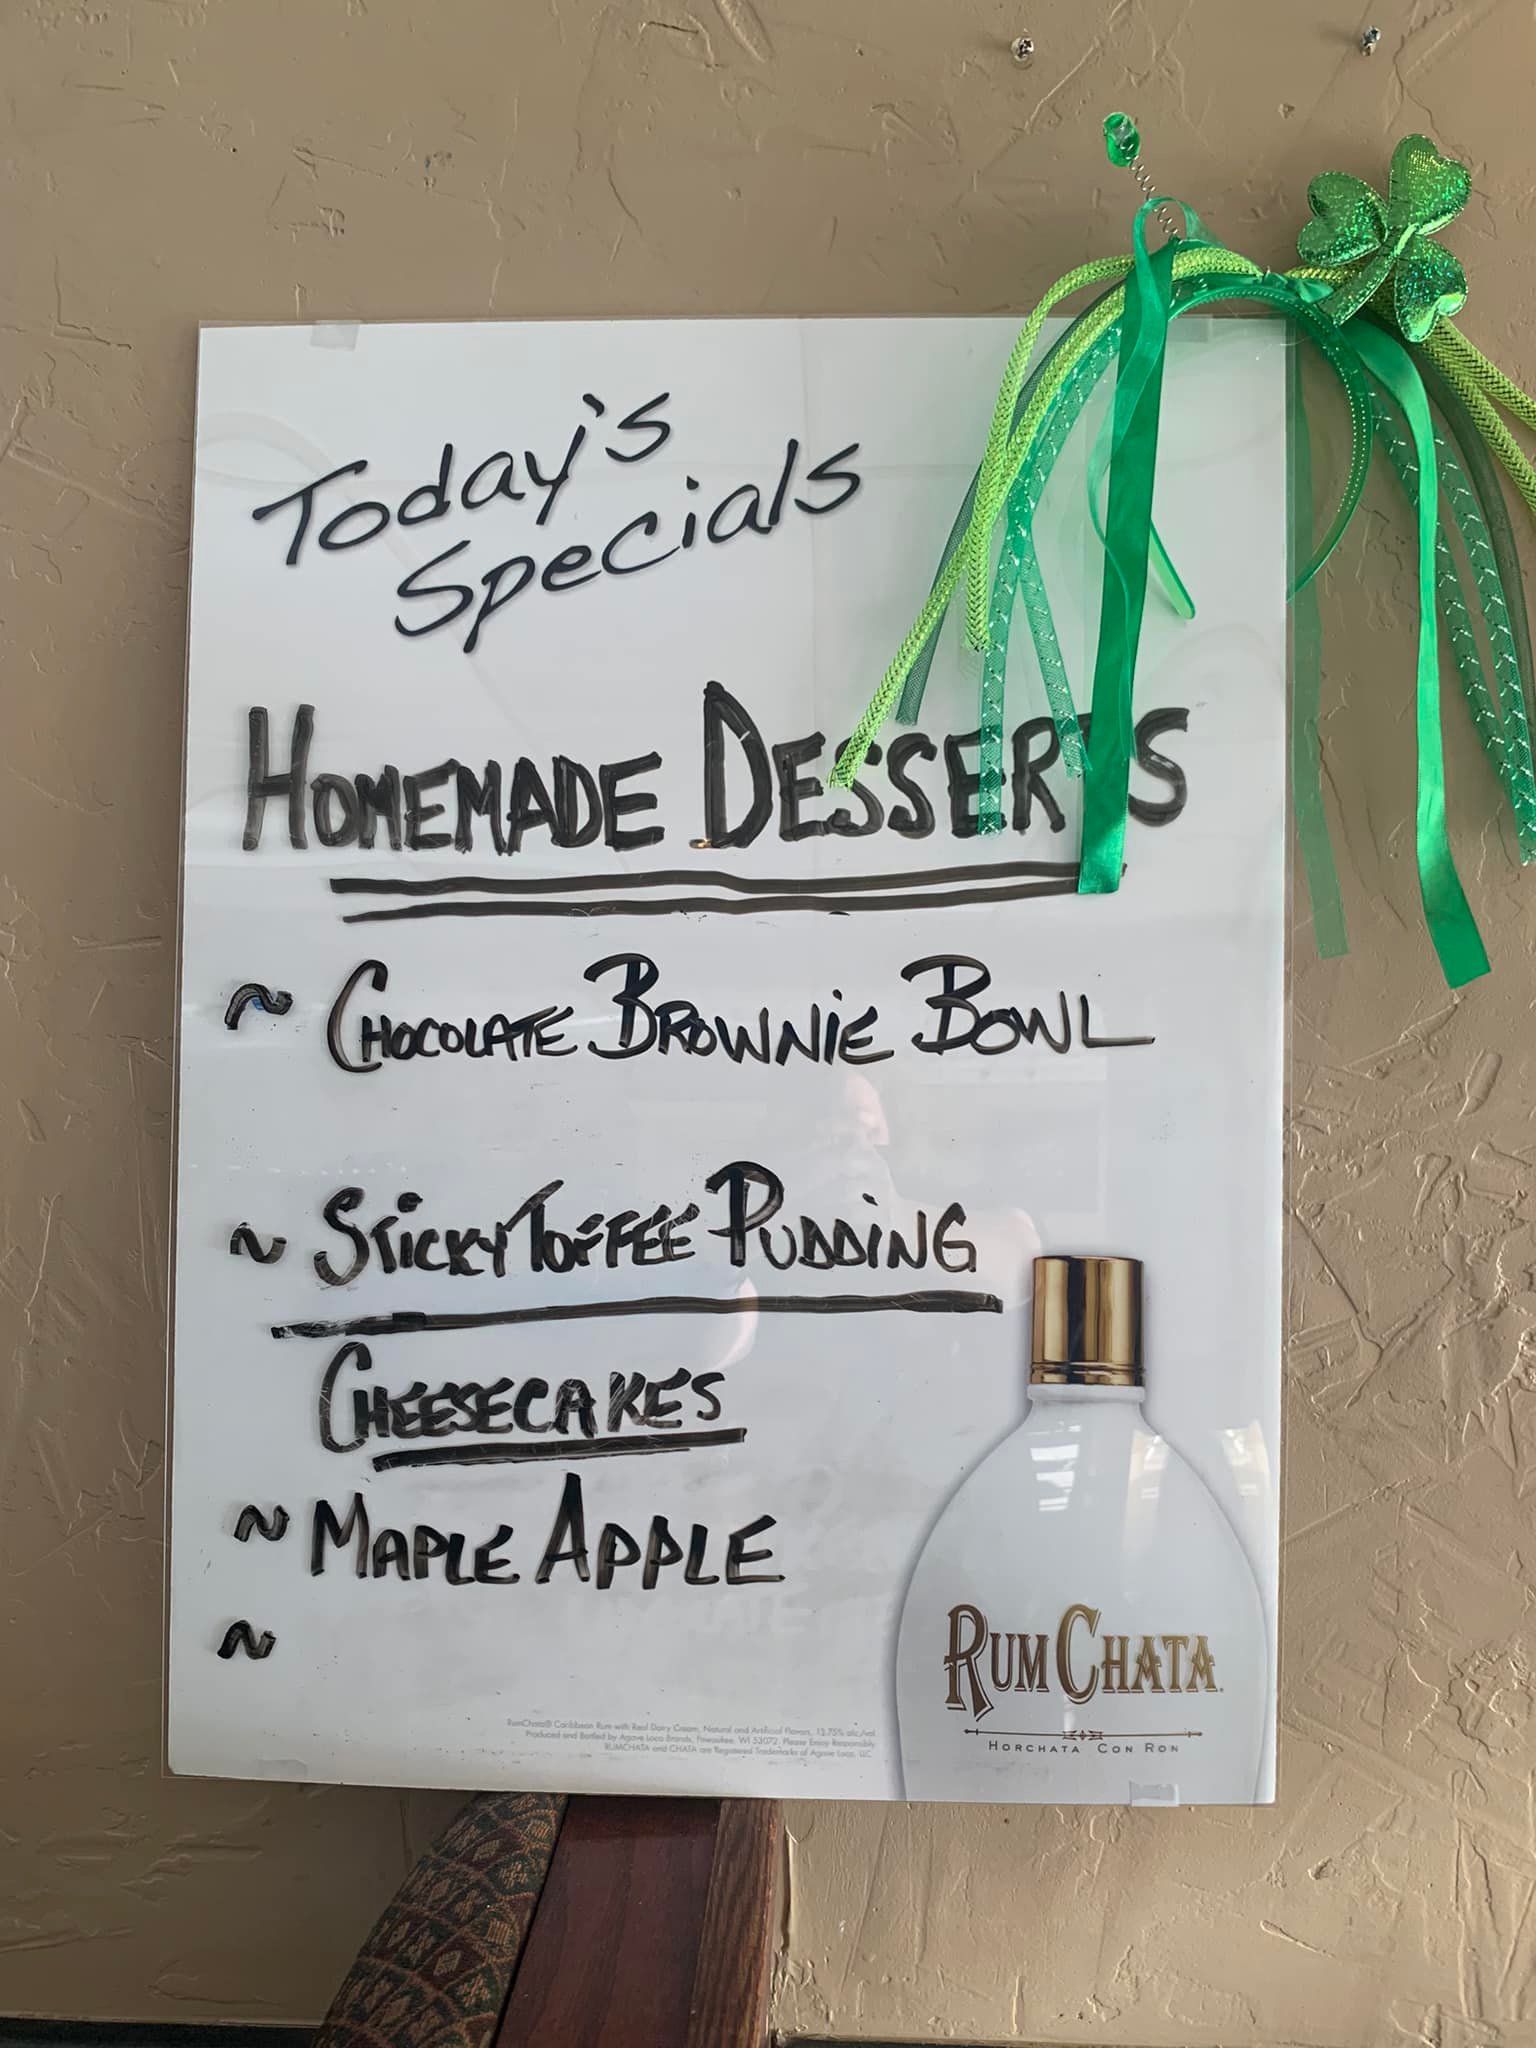 Today's
Specials
HOMEMADE DESSERTS
~ CHOCOLATE BROWNIE BOWL
~ STICKY TOFFEE PUDDING
CHEESECAKES
~ MAPLE APPLE
~
RUMCHATA
HORCHATA CON RON
RumChata® Caribbean Rum with Real Dairy Cream, Natural and Artificial Flavors, 13.75% alc/vol.
Produced and Bottled by Agave Loco Brands, Pewaukee, WI 53072. Please Enjoy Responsibly.
RUMCHATA and CHATA are Registered Trademarks of Agave Loco, LLC